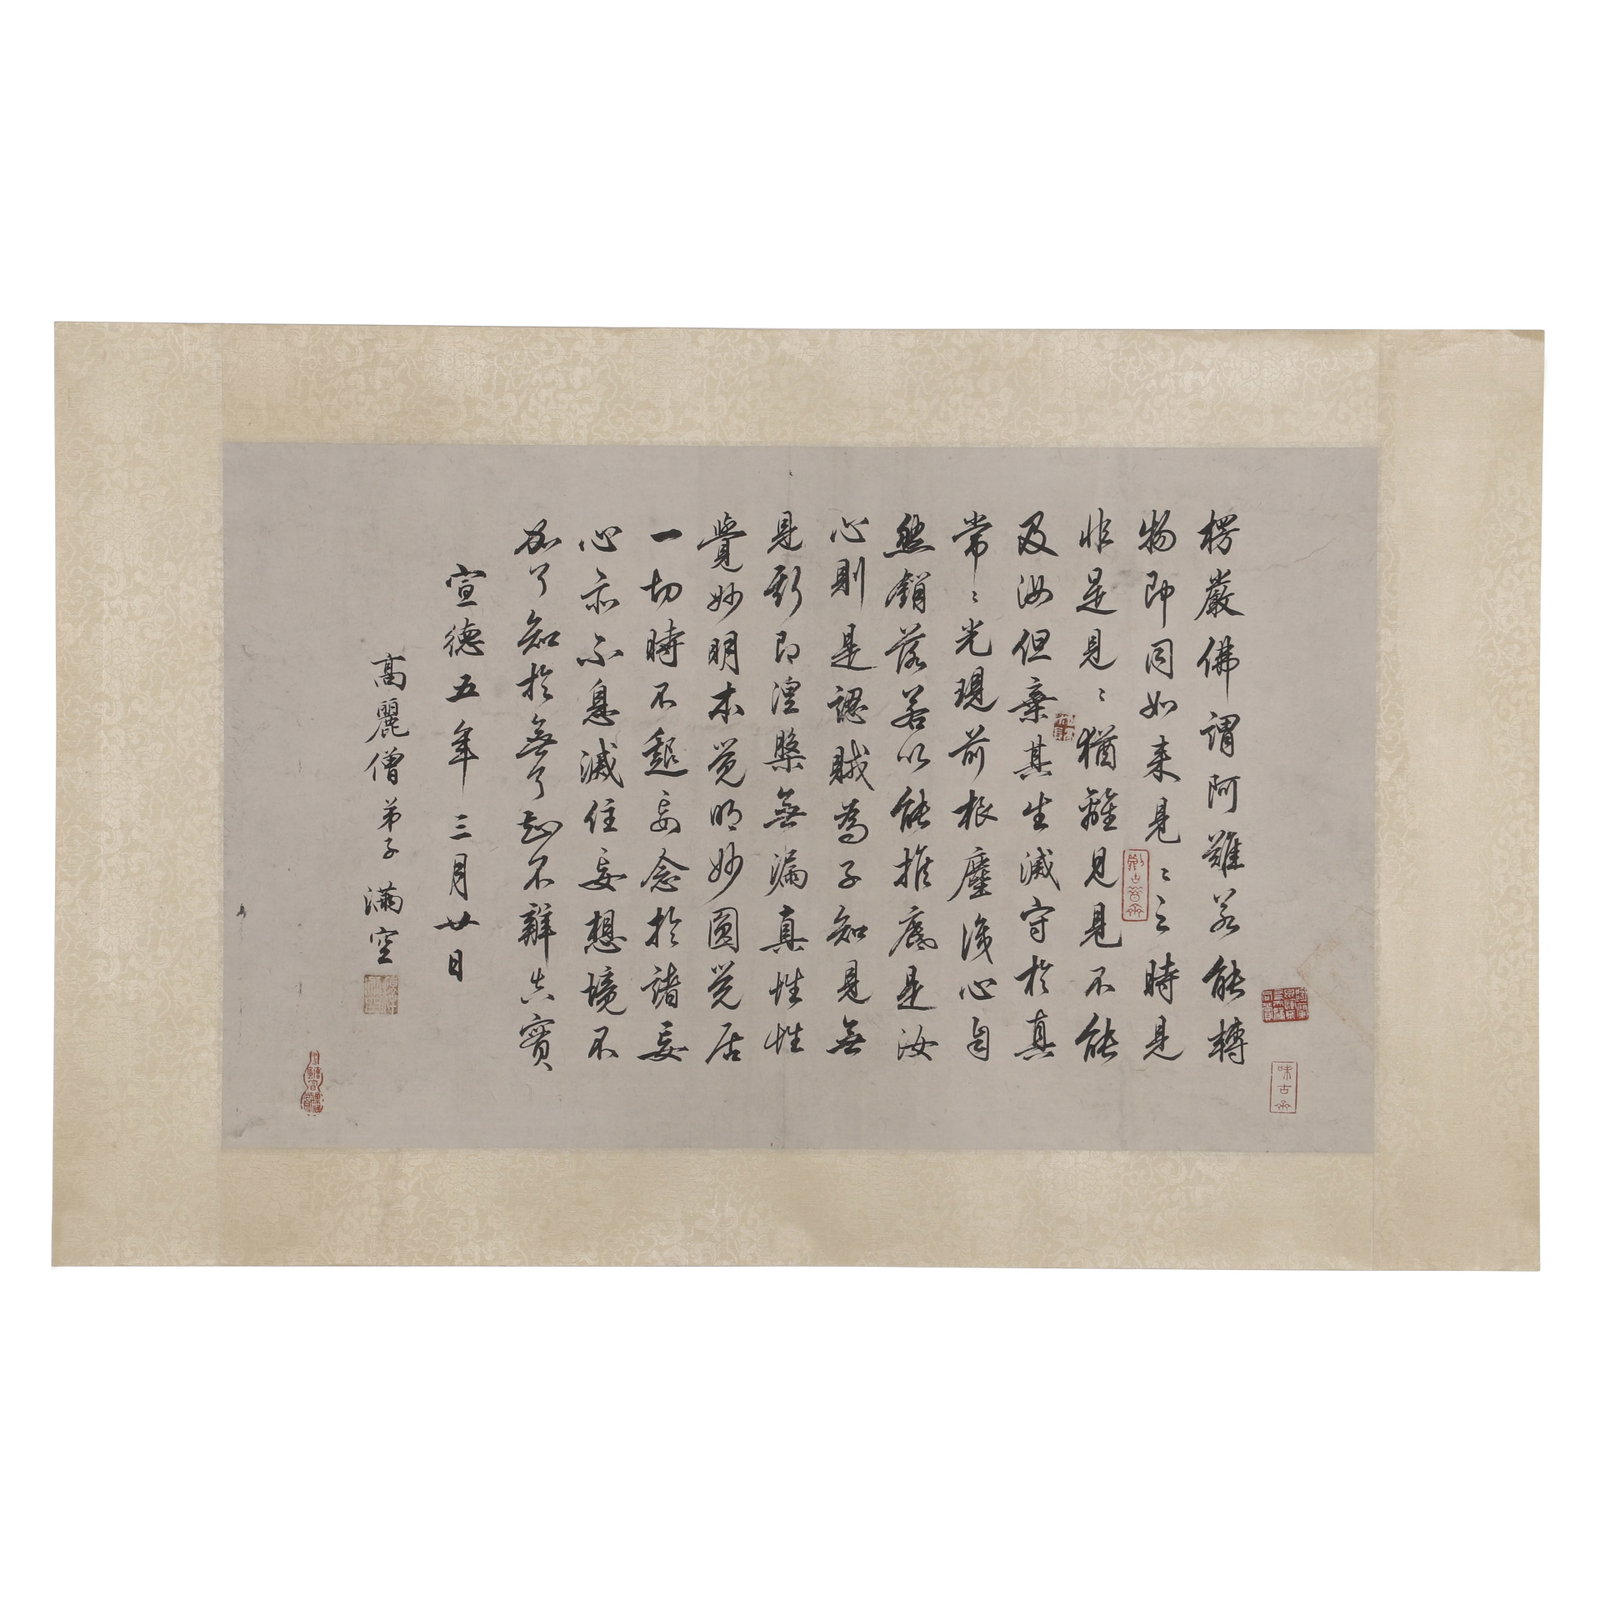 楞嚴佛謂阿難若能轉
物即同如来見〻之時是
非是見〻猶離見見不能
及汝但棄其生滅守於真
常〻光現前根塵識心自
然銷落若以能推底是汝
心則是認賊為子知見無
見斯即涅槃無漏真性性
覺妙明本覚明妙圓覚居
一切時不起妄念於諸妄
心亦不息滅住妄想境不
加了知於無了知不辯真實
宣德五年三月廿日
高麗僧弟子滿空
味古齋